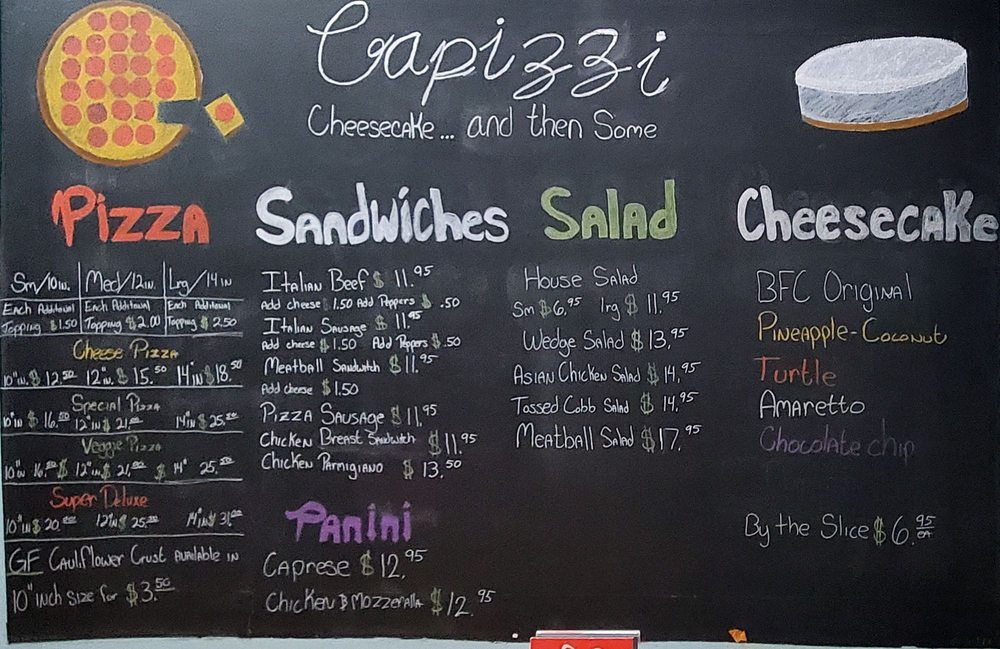 Capizzi
Cheesecake... and then Some
Pizza
Sm/10in. Med/12in. Lrg/14in
Each Additional Each Additional Each Additional
Topping $1.50 Topping $2.00 Topping $2.50
Cheese Pizza
10"in. $12.50 12"in. $15.50 14"in $18.50
Special Pizza
10"in $16.00 12"in $21.00 14"in $25.00
Veggie Pizza
10"in 16.00 $ 12"in $21.00 $ 14" 25.50
Super Deluxe
10"in $20.00 12"in $25.00 14"in $31.00
GF Cauliflower Crust Available in
10" inch size for $3.50
Sandwiches
Italian Beef $11.95
Add cheese 1.50 Add Peppers $.50
Italian Sausage $11.95
Add cheese $1.50 Add Peppers $.50
Meatball Sandwtch $11.95
Add cheese $1.50
Pizza Sausage $11.95
Chicken Breast Sandwtch $11.95
Chicken Parmigiano $13.50
Panini
Caprese $12.95
Chicken & Mozzeralla $12.95
Salad
House Salad
Sm $6.95 lrg $11.95
Wedge Salad $13.95
Asian Chicken Salad $14.95
Tossed Cobb Salad $14.95
Meatball Salad $17.95
Cheesecake
BFC Original
Pineapple-Coconut
Turtle
Amaretto
Chocolate chip
By the Slice $6.95 ea